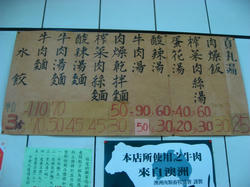 肉燥飯
榨菜肉絲湯
蛋花湯
酸辣湯
牛肉湯
肉燥乾拌麵
榨菜肉絲麵
酸辣湯麵
牛肉湯麵
牛肉麵
水餃
110 70 50 90 60 40 60
3 50 45 45 30 50 30 20 30
本店所使用之牛肉
來自澳洲